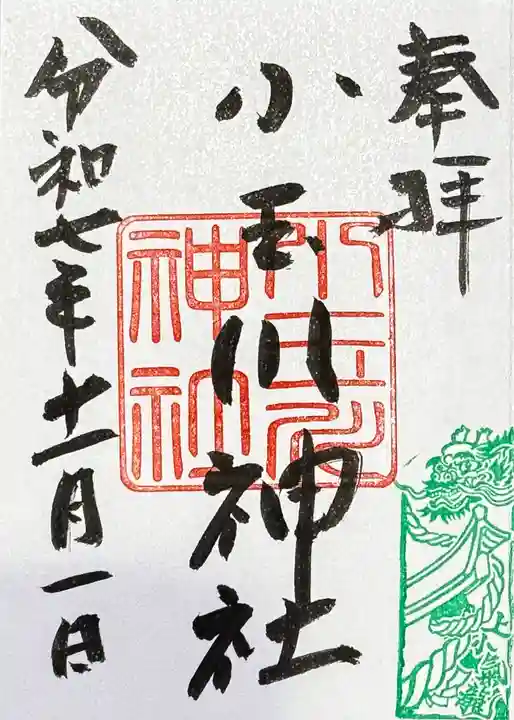 奉拝
小玉川神社
小玉川
神社
令和七年十一月一日